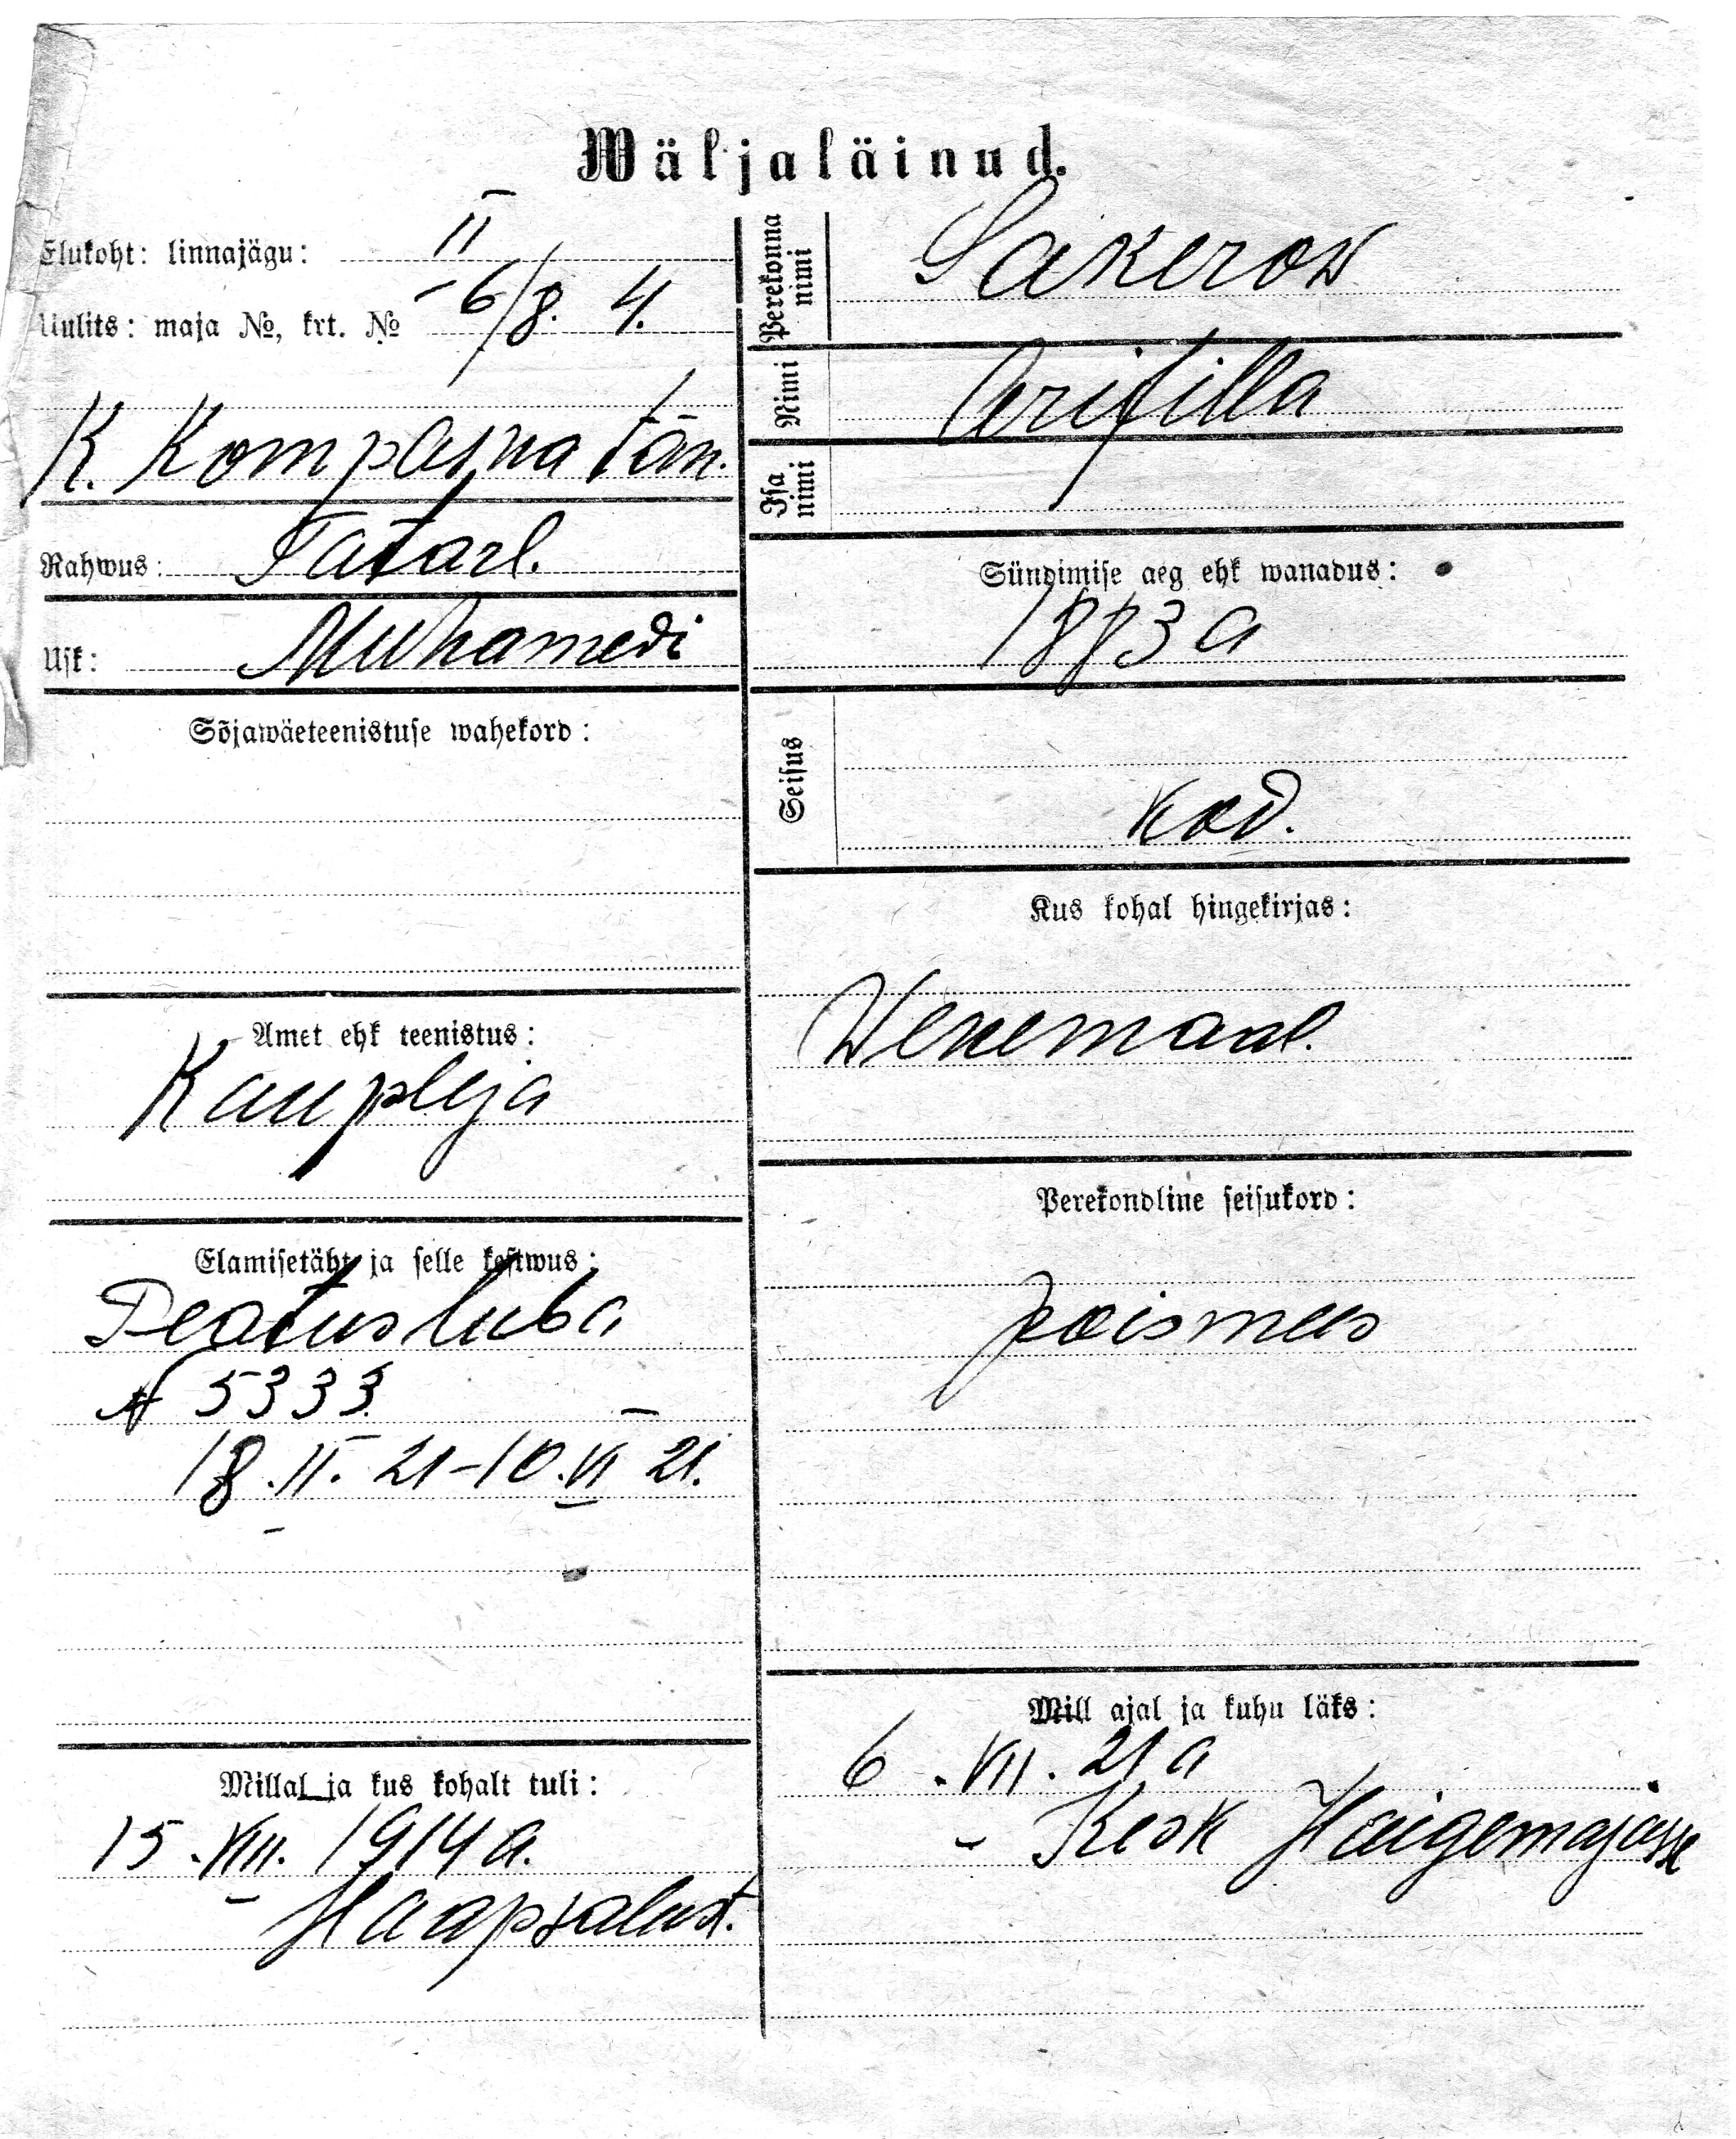 Wäljaläinud.
Elukoht: linnajägu: II
Uulits: maja №, krt. № 6/8. 4.
K. Kompasna tän.
Rahwus: Tatarl.
Usk: Muhamedi
Sõjawäeteenistuse wahekord:
Amet ehk teenistus:
Kaupleja
Elamisetäht ja selle kestwus:
Peatusluba
№ 5333.
18.II.21-10.VI 21.
Millal ja kus kohalt tuli:
15.VIII. 1914 a.
Haapsalust.
Perekonna nimi Sakerow
Nimi Arifilla
Isa nimi
Sündimise aeg ehk wanadus:
1883 a
Seisus
kod.
Kus kohal hingekirjas:
Wenemaal.
Perekondline seisukord:
poismees
Mill ajal ja kuhu läks:
6.VII.21 a
Kesk Haigemajasse